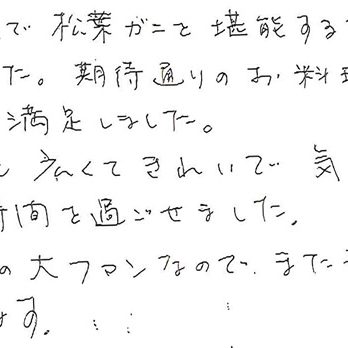 で 松葉ガニを 堪能する
た。期待通りの お料理
満足しました。
広くてきれいで 気
時間を過ごせました。
の大ファンなので、また
ます。